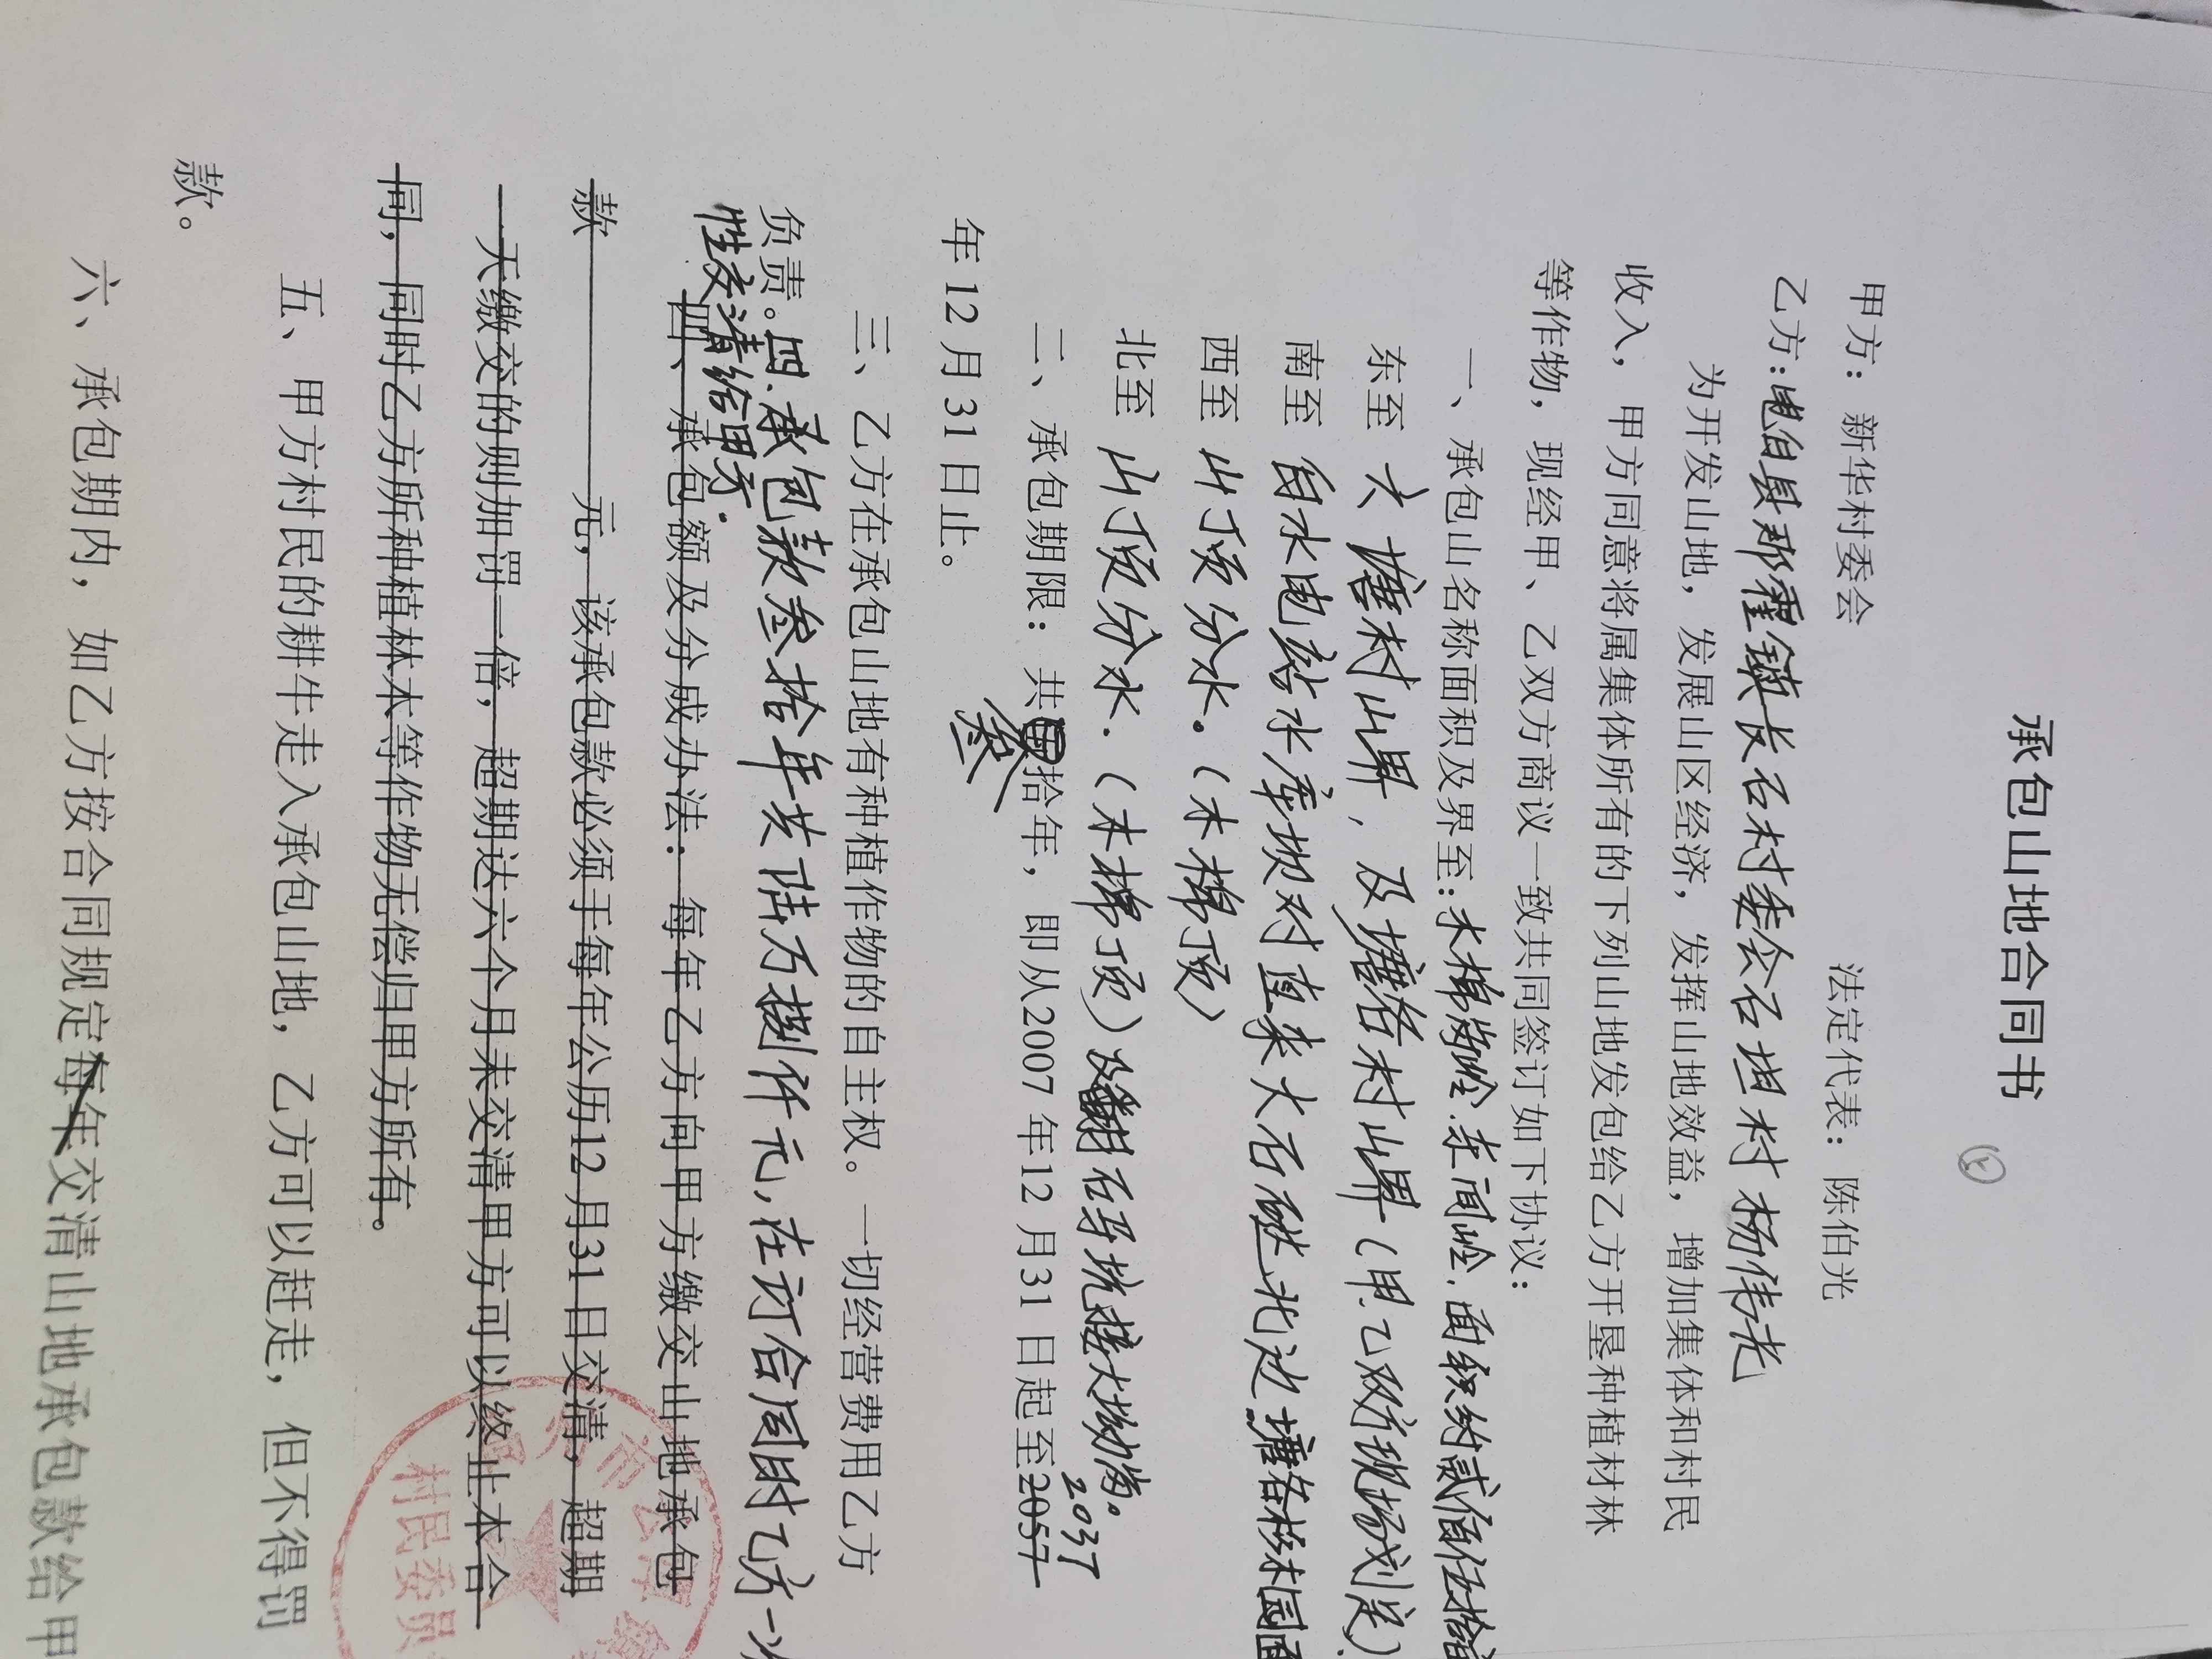 承包山地合同书
甲方：新华村委会 法定代表：陈伯光
乙方：电白县那霍镇长石村委会石坦村杨伟光
为开发山地，发展山区经济，发挥山地效益，增加集体和村民
收入，甲方同意将属集体所有的下列山地发包给乙方开垦种植材林
等作物，现经甲、乙双方商议一致共同签订如下协议：
一、承包山名称面积及界至：木梯岭.东间岭.面积约贰佰伍拾亩
东至 六塘村山界，及塘角村山界（甲.乙双方现场划定）
南至 自水电站水库坝对直来大石 北边
西至 山顶分水。（木梯顶）
北至 山顶分水.（木梯顶）及 石马坑接大坳
二、承包期限：共叁拾年，即从2007年12月31日起至2057 2037
年12月31日止。
三、乙方在承包山地有种植作物的自主权。一切经营费用乙方
负责。四.承包款叁拾年共陆万捌仟元，在订合同时乙方一次
性交清给甲方.
四、承包额及分成办法：每年乙方向甲方缴交山地承包
款 元，该承包款必须于每年公历12月31日交清，超期
天缴交的则加罚一倍，超期达六个月未交清甲方可以终止本合
同，同时乙方所种植林木等作物无偿归甲方所有。
五、甲方村民的耕牛走入承包山地，乙方可以赶走，但不得罚
款。
六、承包期内，如乙方按合同规定每年交清山地承包款给甲
村民委员